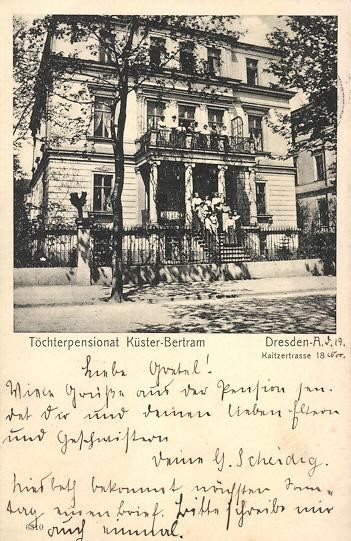 Töchterpensionat Küster-Bertram Dresden-A. d. 19.
Kaitzertrasse 18 Nov.
Liebe Gretel!
Viele Grüße aus der Pension sen-
det Dir und deinen lieben Eltern
und Geschwistern
Deine G. Scheidig.
Liesbeth bekommt nächsten Sonn-
tag einen Brief. Bitte schreibe mir
6810 auch einmal.